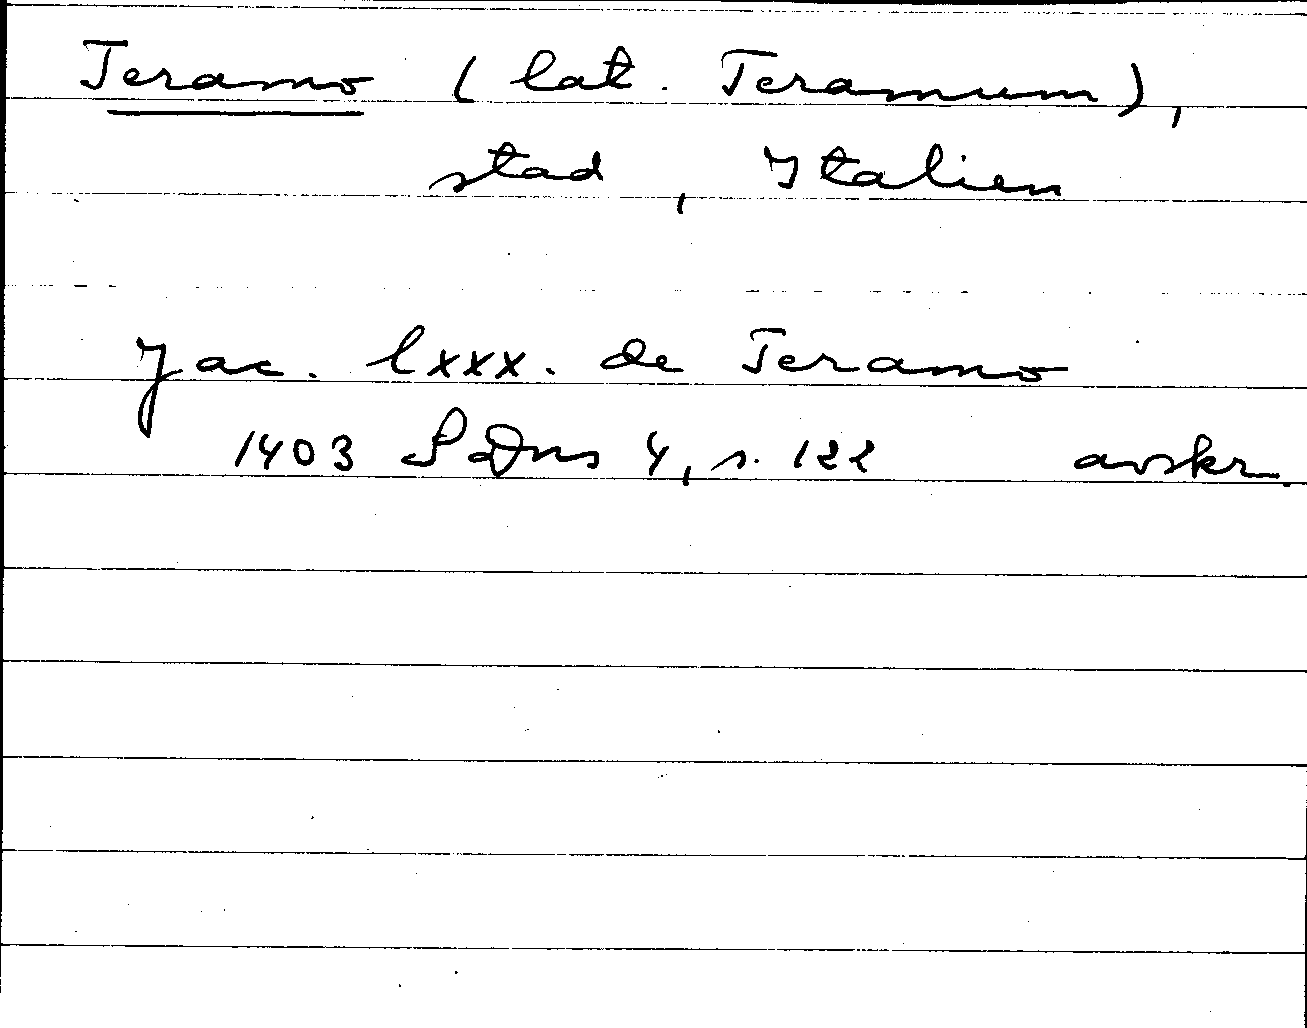 Teramo (lat. Teramum),
stad, Italien
Jac. lxxx. de Teramo
1403 SDns 4, s. 122 avskr.